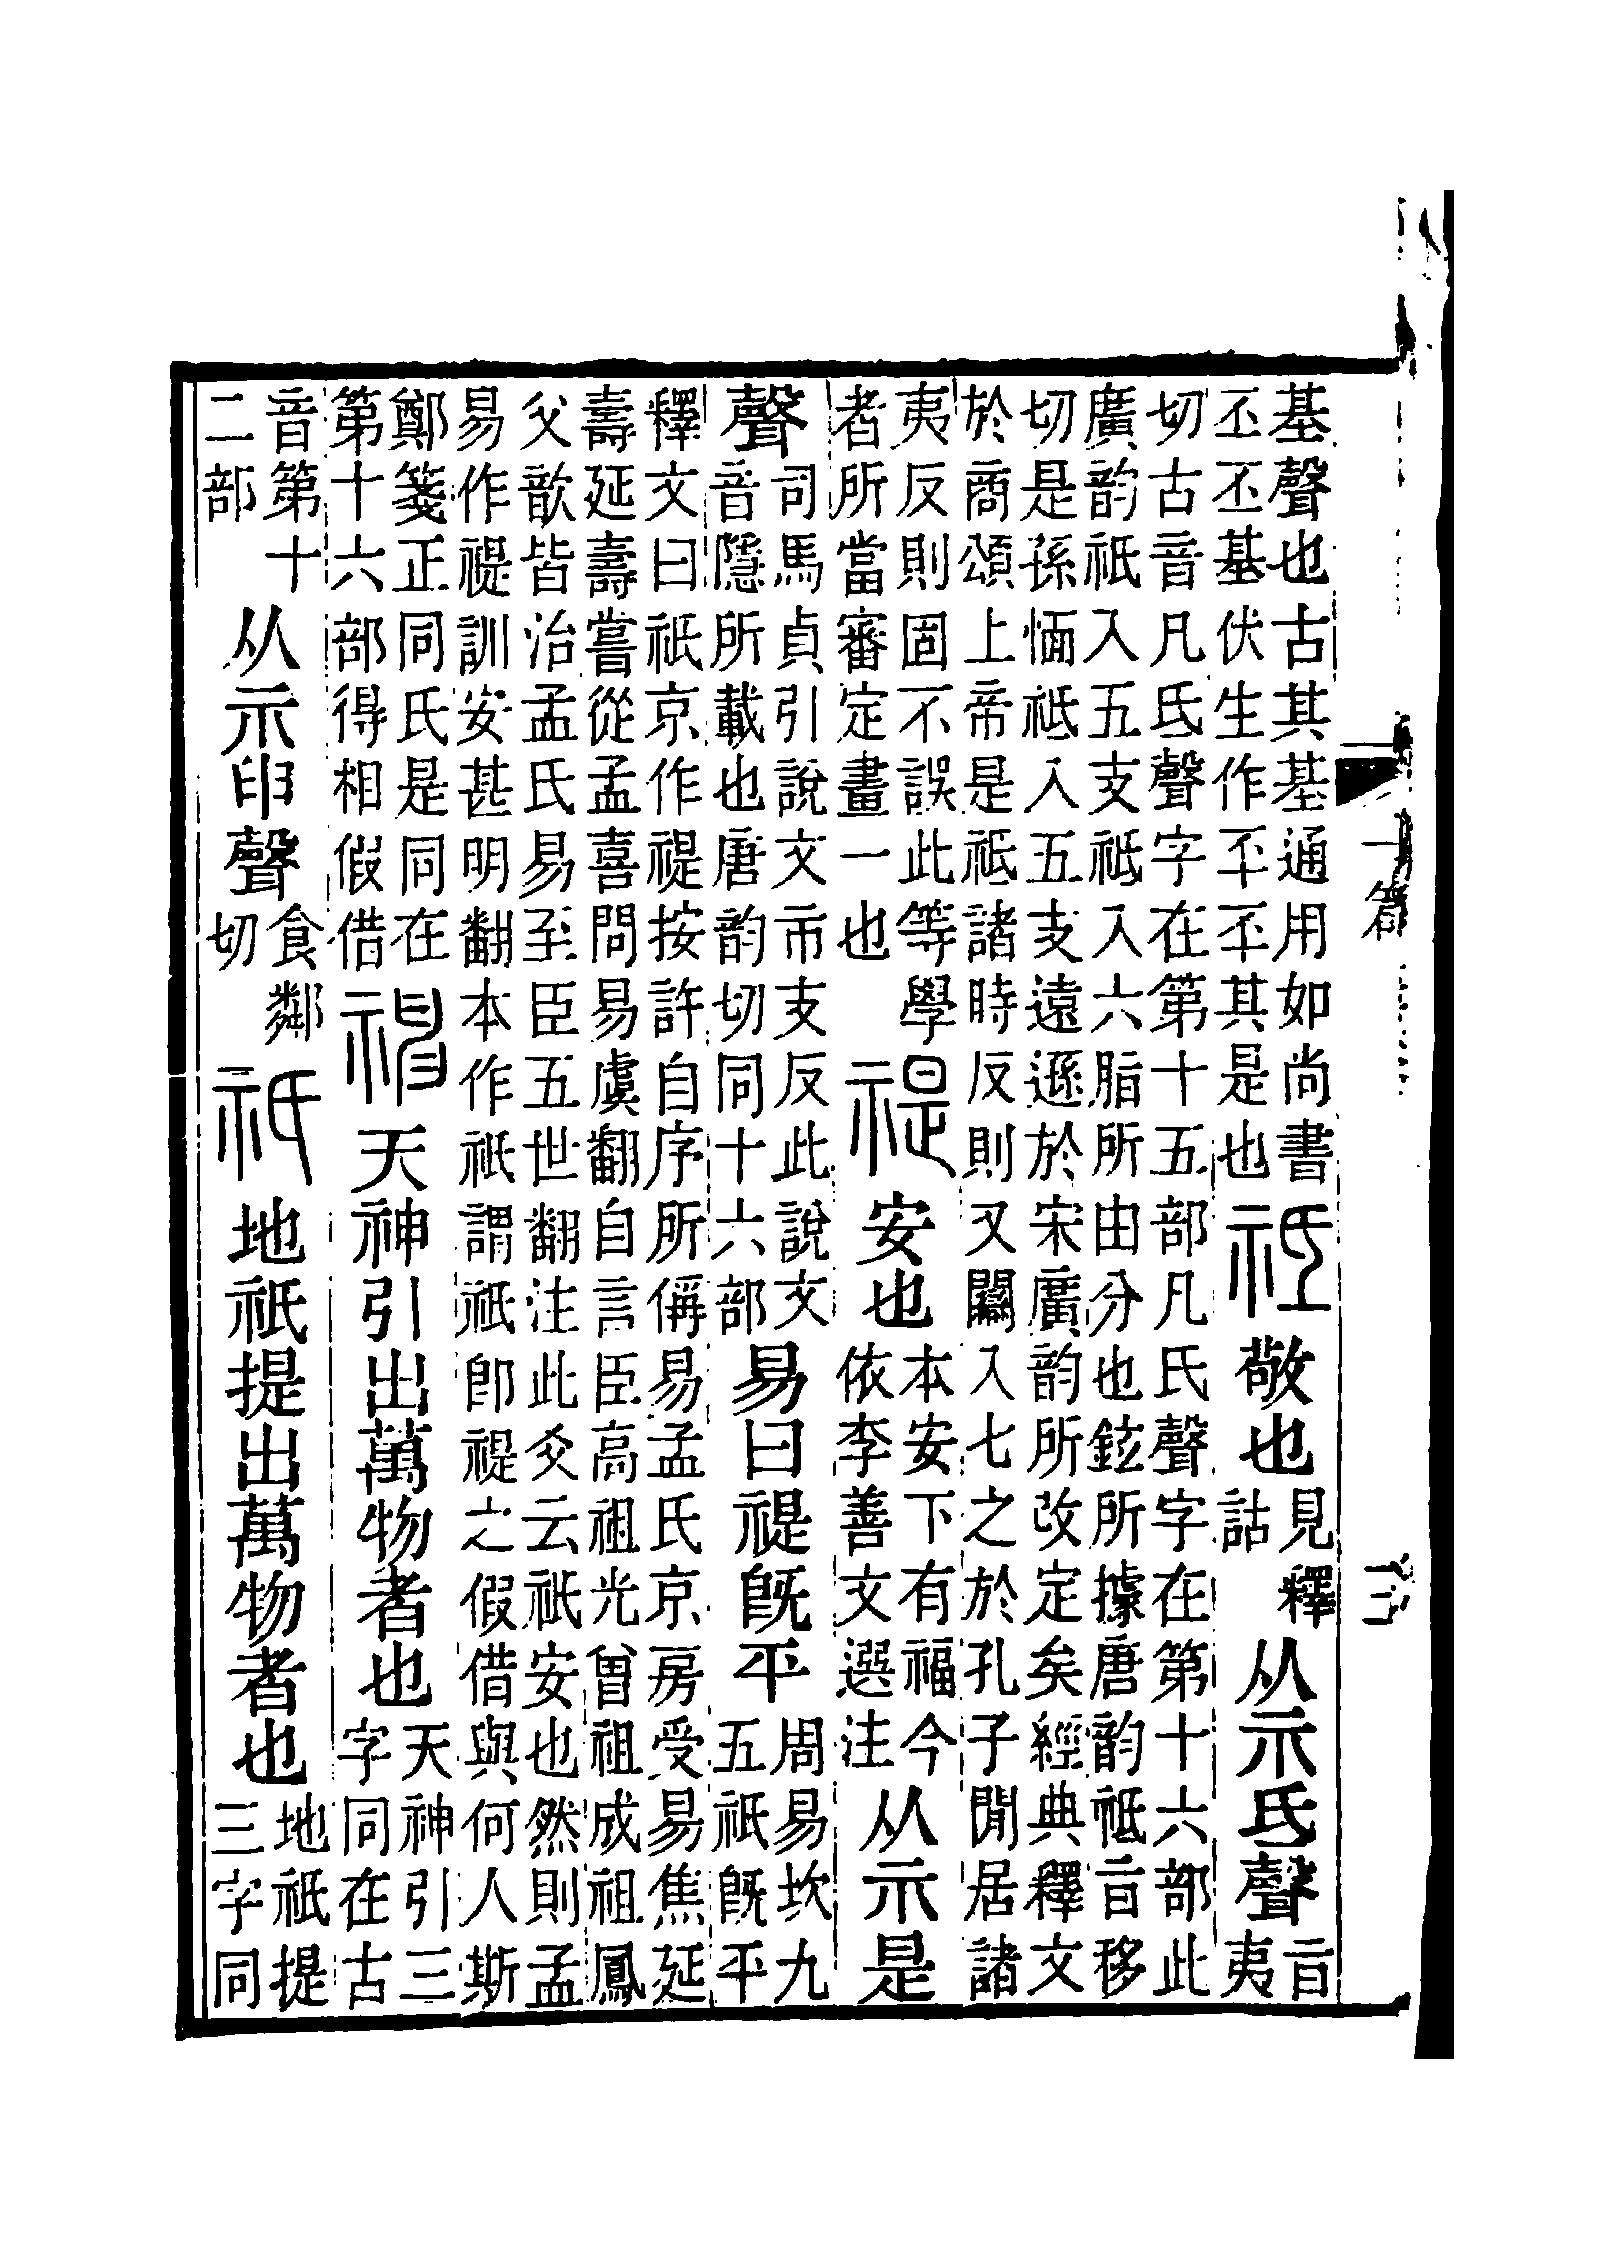 基聲也古其基通用如尚書丕丕基伏生作丕丕其是也祗敬也見釋詁从示氐聲旨夷
切古音凡氐聲字在第十五部凡氏聲字在第十六部此
廣韵祇入五支祗入六脂所由分也鉉所據唐韵祗音移
切是孫愐祗入五支遠遜於宋廣韵所改定矣經典釋文
於商頌上帝是祗諸時反則又闌入七之於孔子閒居諸
夷反則固不誤此等學者所當審定畫一也禔安也本安下有福今依李善文選注从示是
聲司馬貞引說文市支反此說文音隱所載也唐韵切同十六部易曰禔旣平周易坎九五祇旣平
釋文曰祇京作禔按許自序所偁易孟氏京房受易焦延
壽延壽嘗從孟喜問易虞翻自言臣高祖光曾祖成祖鳳
父歆皆治孟氏易至臣五世翻注此爻云祇安也然則孟
易作禔訓安甚明翻本作祇謂祇卽禔之假借與何人斯
鄭箋正同氏是同在第十六部得相假借神天神引出萬物者也天神引三字同在古
音第十二部从示申聲食鄰切祇地祇提出萬物者也地祇提三字同
一篇
三